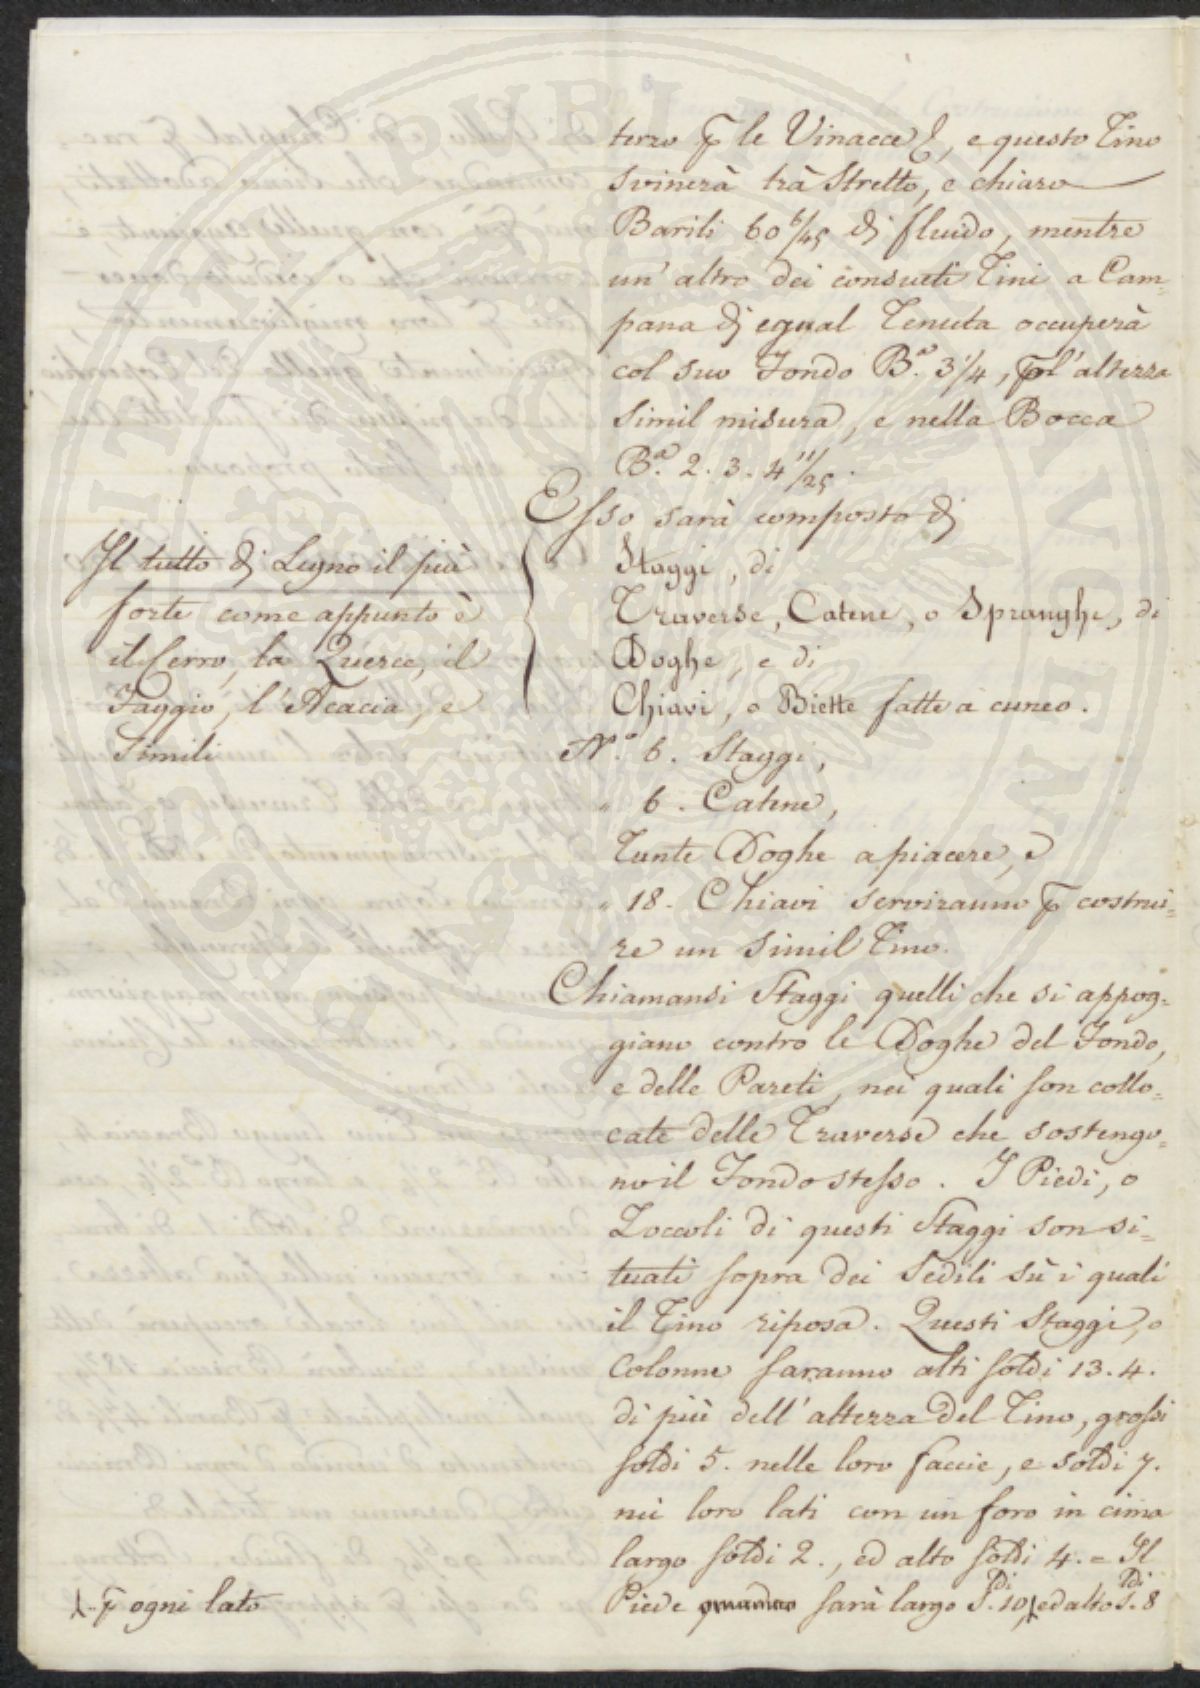 terzo p le Vinacce), e questo Tino
svinerà trà Stretto, e chiaro
Barili 60 6/45 di fluido, mentre
un' altro dei consueti Tini a Cam=
pana di egual Tenuta occuperà
col suo Fondo B.a 3 1/4, p l'altezza
simil misura, e nella Bocca
B.a 2. 3. 4 11/25.
Esso sarà composto di
Staggi, di
Traverse, Catene, o Spranghe, di
Doghe, e di
Chiavi, o Biette fatte a cuneo.
Il tutto di Legno il più
forte come appunto è
il Cerro, la Querce, il
Faggio, l'Acacia, e
Simili
N.o 6. Staggi,
" 6. Catene,
Tante Doghe a piacere, e
" 18. Chiavi serviranno p costrui=
re un simil Tino.
Chiamansi Staggi quelli che si appog=
giano contro le Doghe del Fondo,
e delle Pareti, nei quali son collo=
cate delle Traverse che sostengo=
no il Fondo stesso. I Piedi, o
Zoccoli di questi Staggi son si=
tuati sopra dei Sedili sù i quali
il Tino riposa. Questi Staggi, o
Colonne saranno alti soldi 13. 4.
di più dell'altezza del Tino, grossi
soldi 5. nelle loro faccie, e soldi 7.
nei loro lati con un foro in cima
largo soldi 2., ed alto soldi 4. = Il
Piede sarà largo S.di 10, ed alto S.di 8
p ogni lato
PROSPERITATI PUBLICAE AUGENDAE